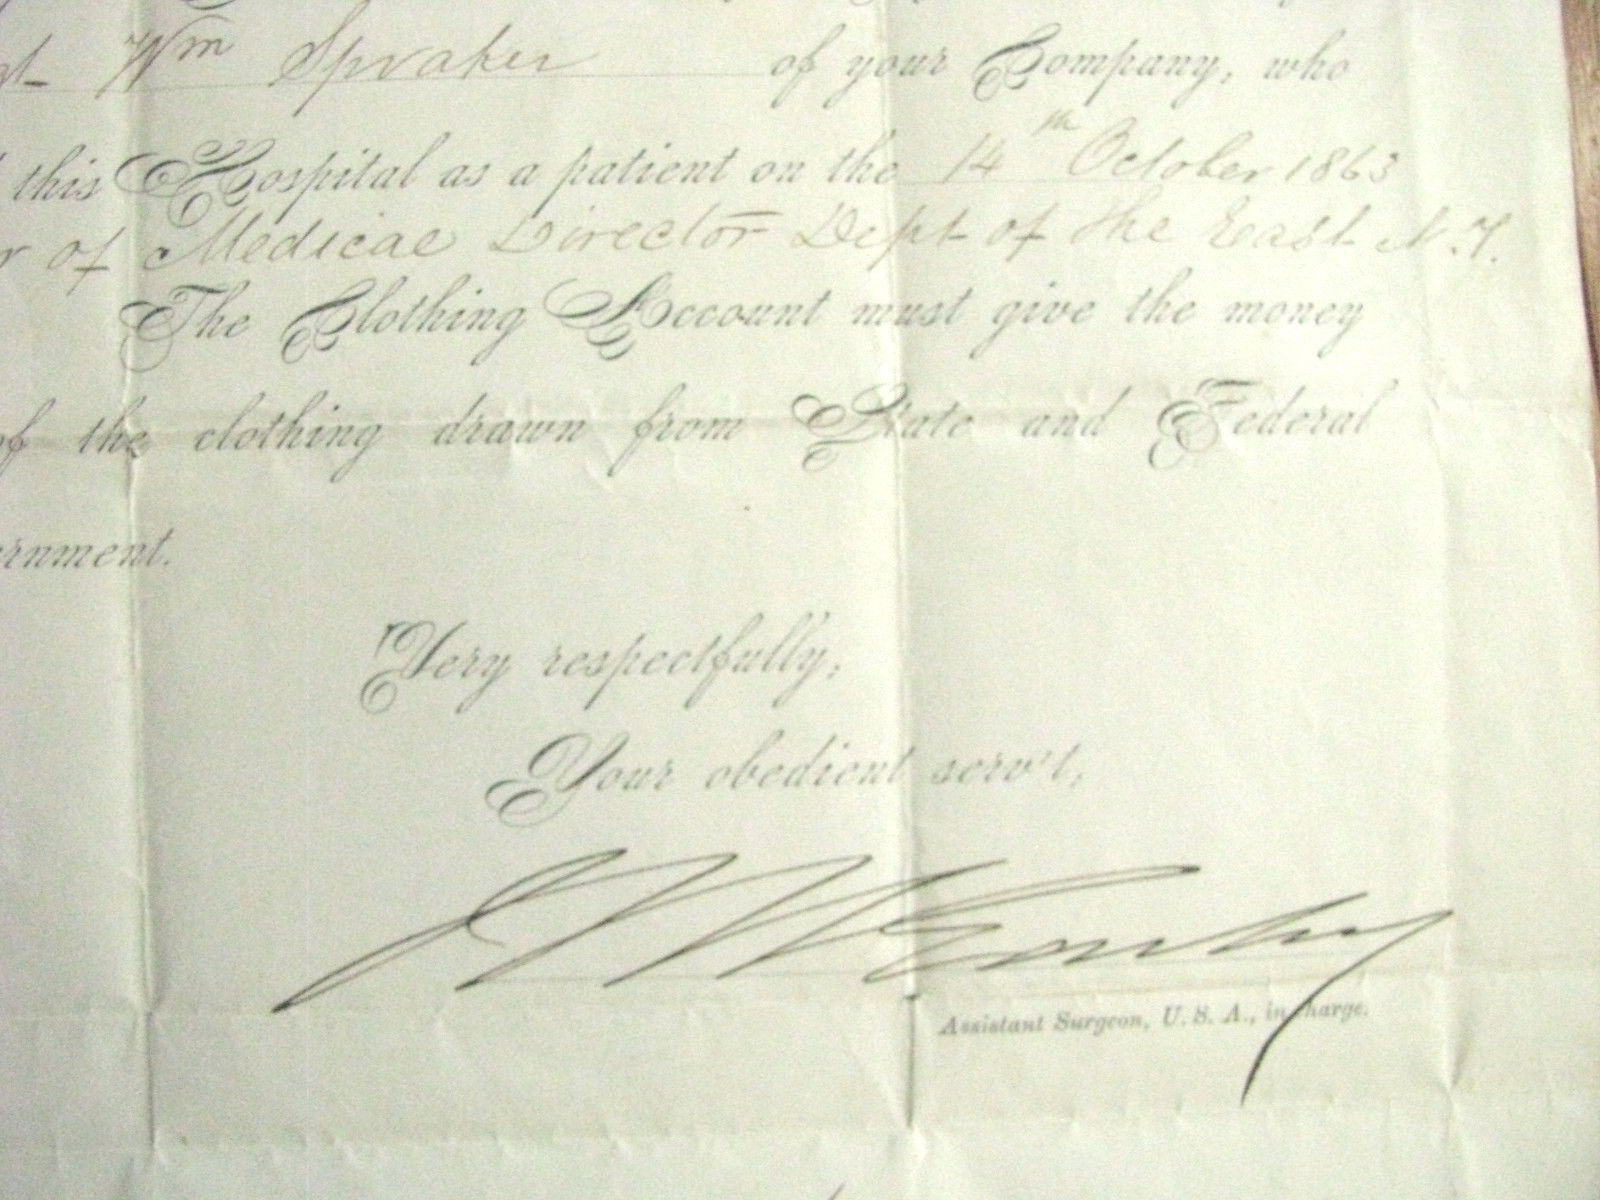 Wm Spraker of your Company, who
this Hospital as a patient on the 14th October 1863
of Medical Director Dept of the East N.Y.
The Clothing Account must give the money
of the clothing drawn from State and Federal
ernment.
Very respectfully,
Your obedient serv't,
Assistant Surgeon, U. S. A., in charge.